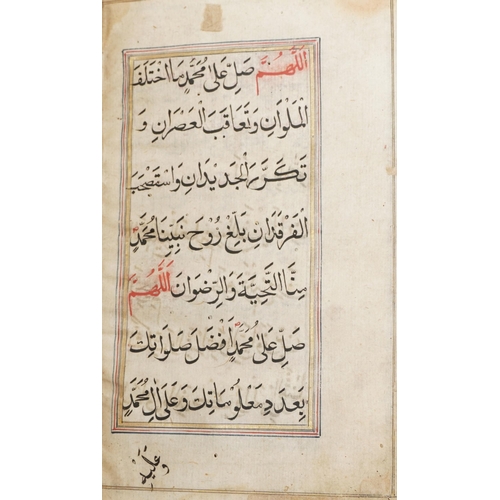 اللّٰهُمَّ صَلِّ عَلٰى مُحَمَّدٍ مَا اخْتَلَفَ
المَلَوَانِ وَتَعَاقَبَ العَصْرَانِ وَ
تَكَرَّرَ الجَدِيدَانِ وَاسْتَصْحَبَ
الفَرْقَدَانِ بَلِّغْ رُوحَ نَبِيِّنَا مُحَمَّدٍ
مِنَّا التَّحِيَّةَ وَالرِّضْوَانَ اَللّٰهُمَّ
صَلِّ عَلٰى مُحَمَّدٍ اَفْضَلَ صَلَوَاتِكَ
بِعَدَدِ مَعْلُومَاتِكَ وَعَلٰى اٰلِ مُحَمَّدٍ
وَعَلَيْهِ